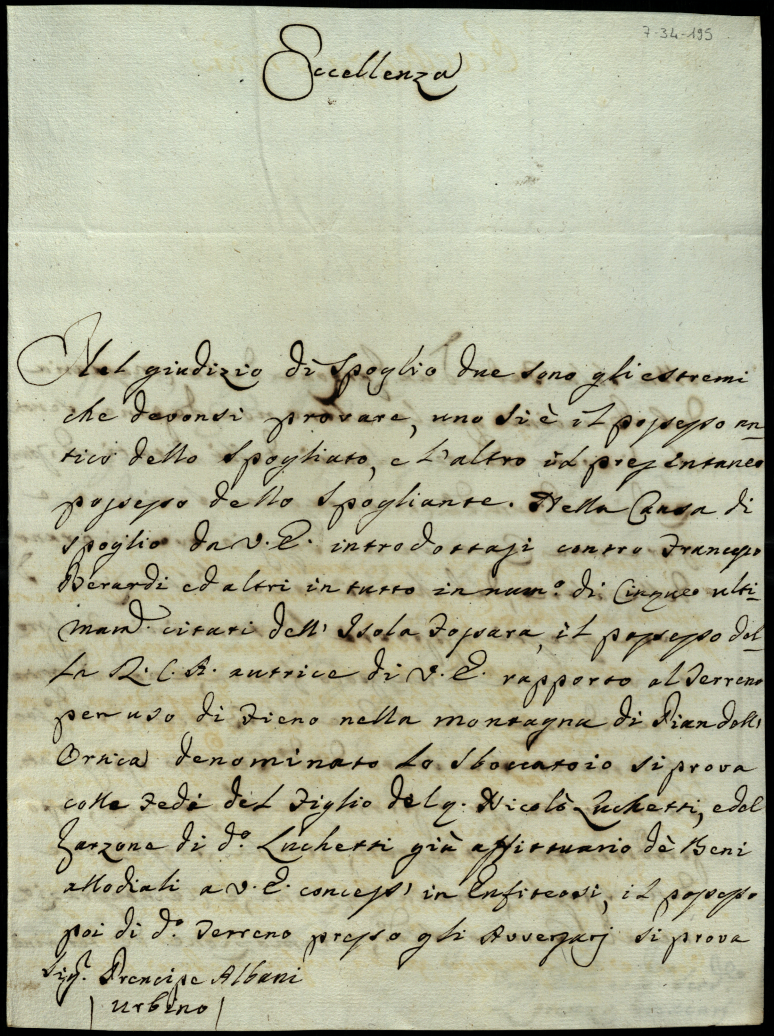 7-34-195
Eccellenza
Nel giudizio di Spoglio due sono gli estremi
che devonsi provare, uno si è il possesso an-
tico dello Spogliato, e l'altro il presentaneo
possesso dello Spogliante. Nella Causa di
Spoglio da V. E. introdottasi contro Francesco
Berardi ed altri in tutto in num.º di Cinque ulti-
mam.e citati dell'Isola Fossara, il possesso del-
la R. C. A. autrice di V. E. rapporto al Terreno
per uso di Fieno nella montagna di Pian dell'
Ortica denominato lo Sboccatoio si prova
colle Fedi del Figlio del q. Nicolò Luchetti, e del
Garzone di d.º Luchetti già affittuario de Beni
allodiali a V. E. concessi in Enfiteosi, il possesso
poi di d.º Terreno presso gli Avversarj si prova
Sig.r Prencipe Albani
Urbino